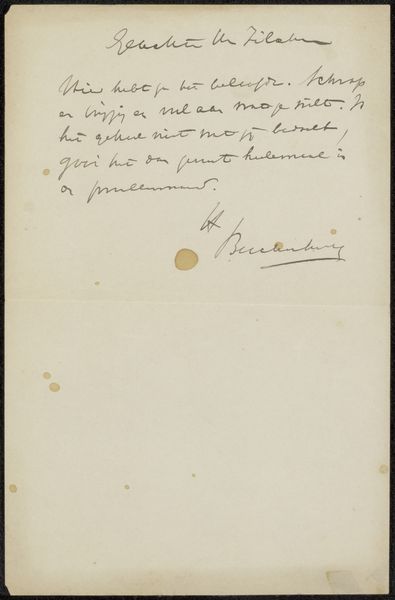 Geachte Hr Zilcken
Hier hebt je het beloofde. Schrap
er bij en vul aan wat je wilt. Is
het geheel niet wat je bedoelt,
gooi het dan gerust helemaal in
de prullemand.
H